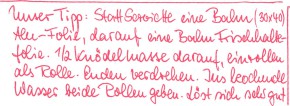 Unser Tipp: Statt Serviette eine Bahn (30x40)
Alu-Folie, darauf eine Bahn Frischhalte-
folie. 1/2 Knödelmasse darauf, einrollen
als Rolle. Enden verdrehen. Ins kochende
Wasser beide Rollen geben. Löst sich sehr gut